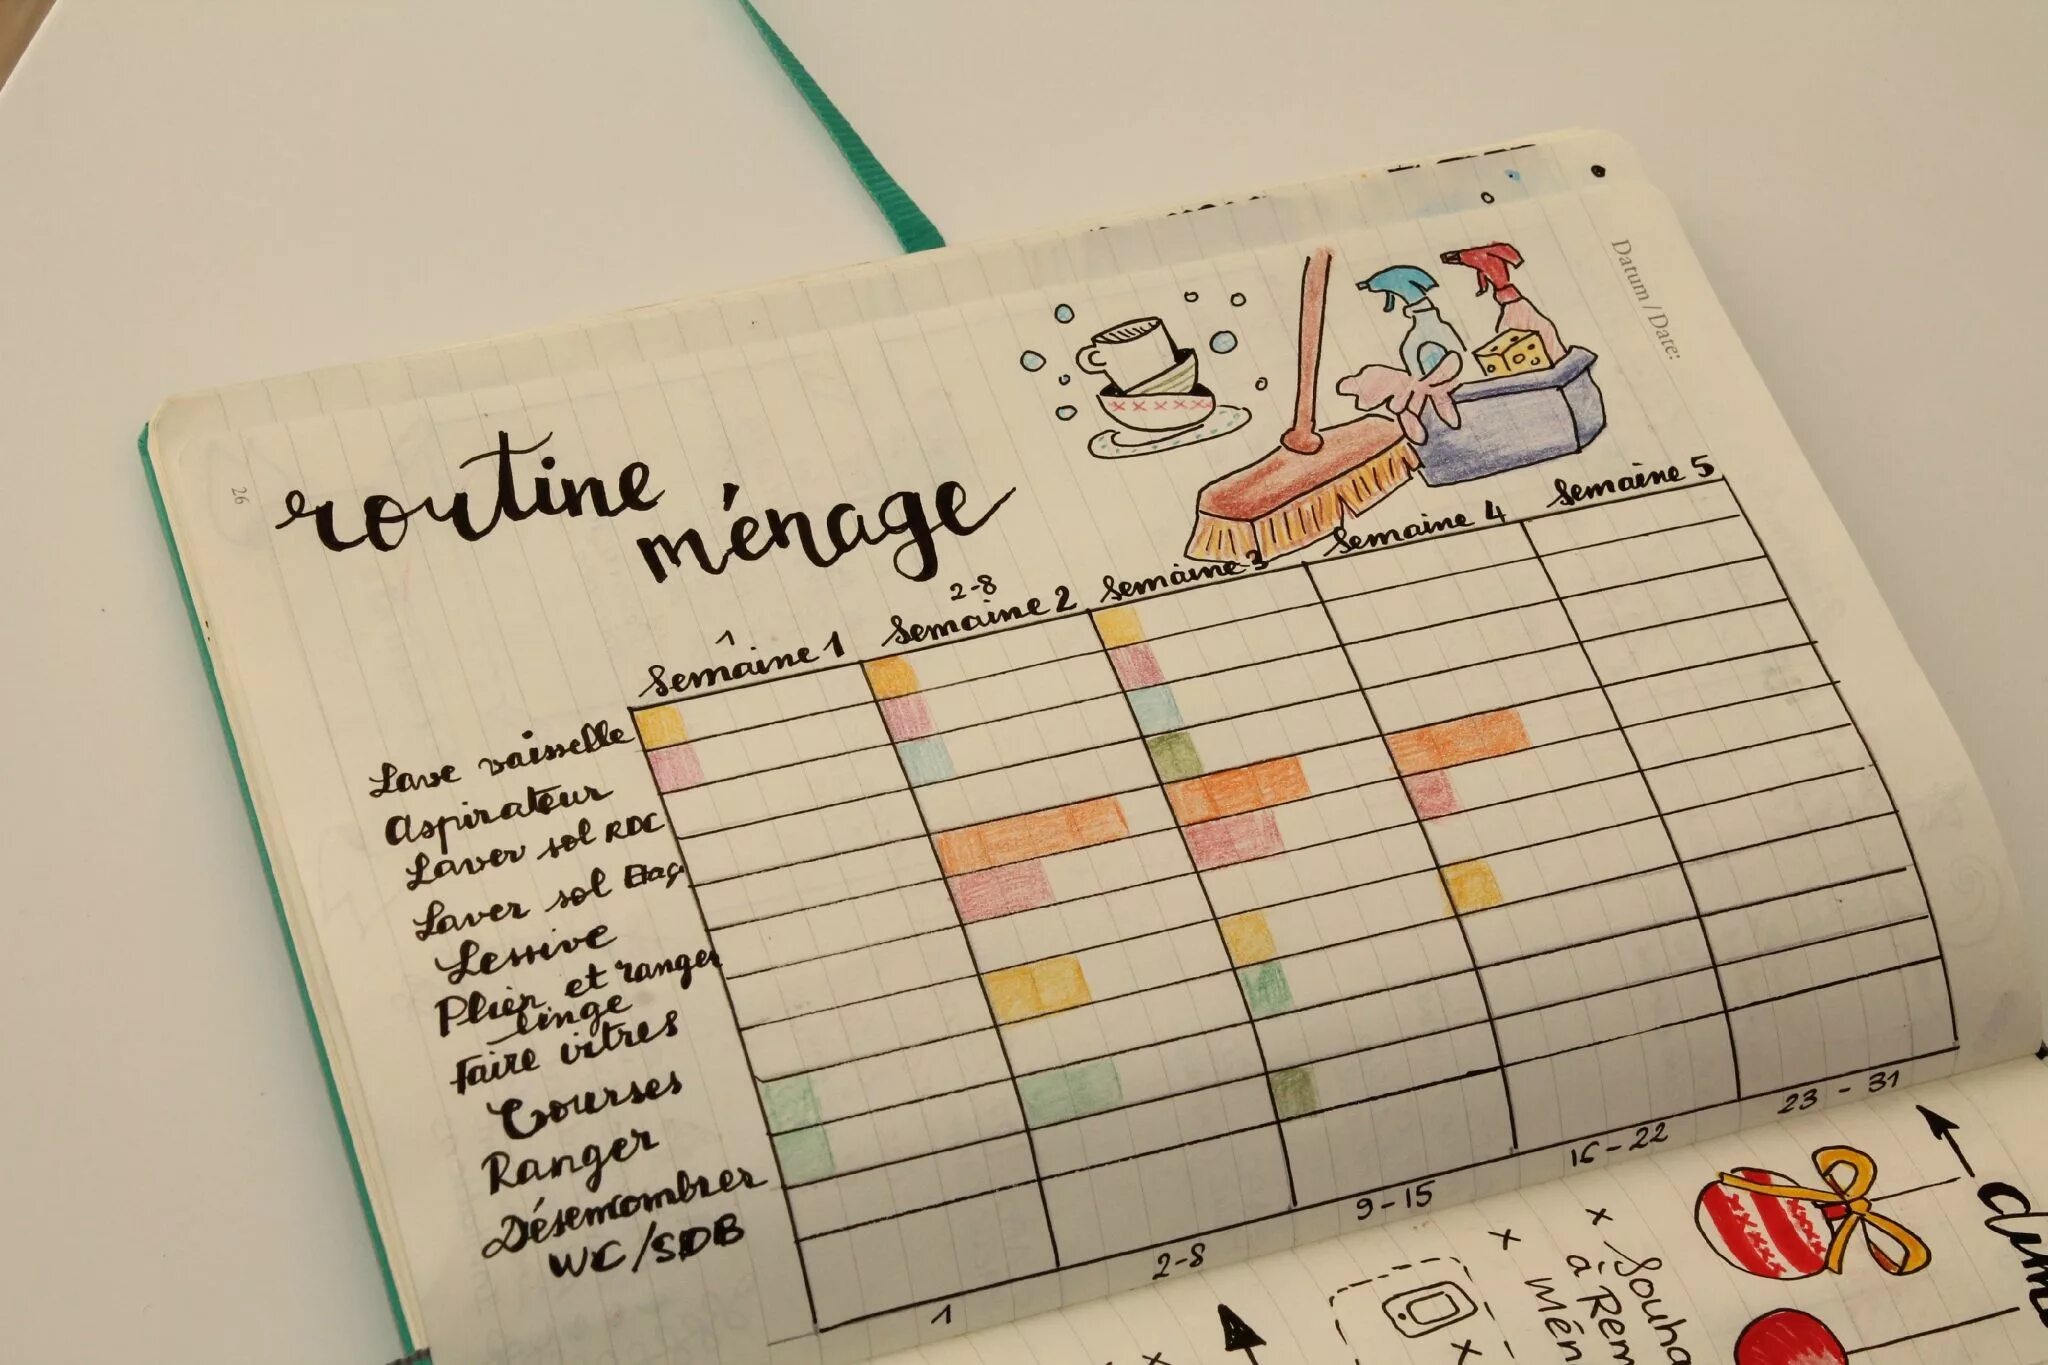 Datum/Date:
26
routine
ménage
1
Semaine 1
2-8
Semaine 2
Semaine 3
Semaine 4
Semaine 5
Lave vaisselle
Aspirateur
Laver sol RDC
Laver sol Etag
Lessive
Plier et ranger
linge
Faire vitres
Courses
Ranger
Désencombrer
WC/SDB
1
2-8
9-15
16-22
23-31
x
x
x
x
à Rem